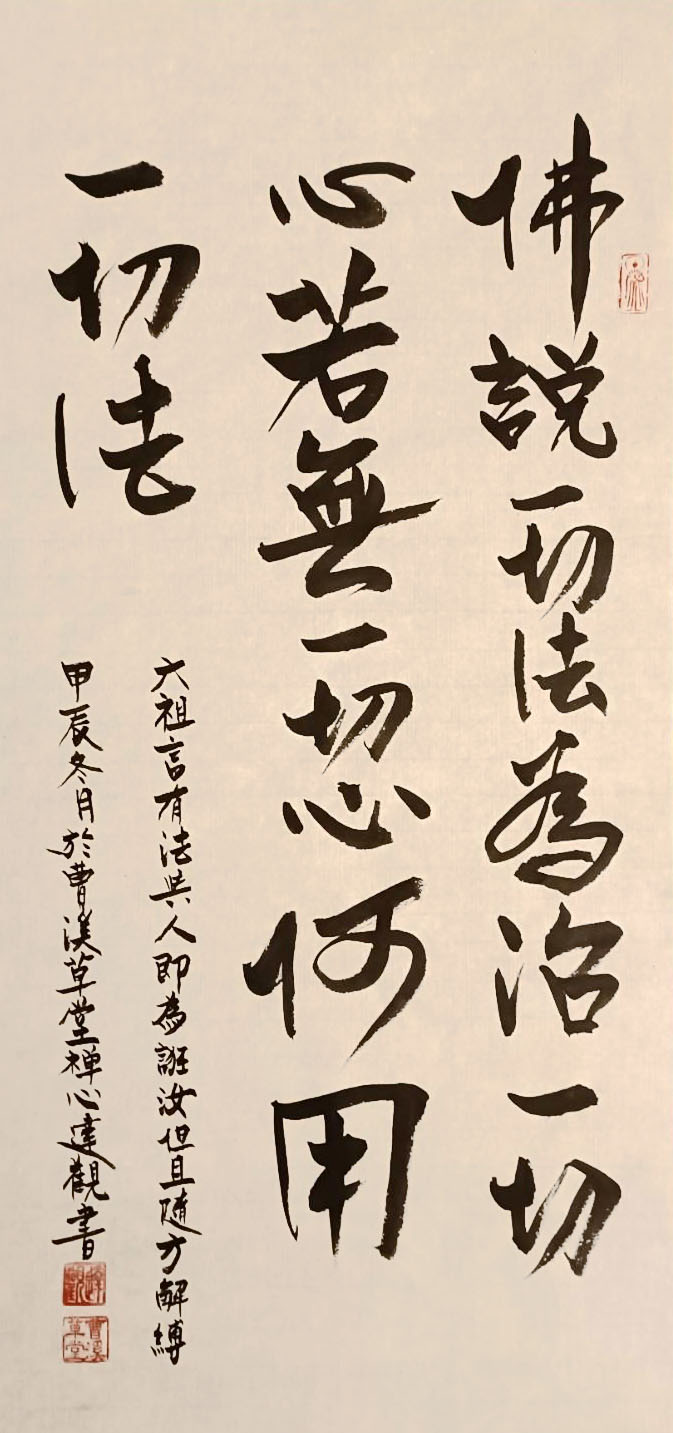 佛說一切法為治一切
心若無一切心何用
一切法
六祖言有法與人即為誑汝但且隨方解縛
甲辰冬月於曹溪草堂禅心達觀書
曹溪草堂